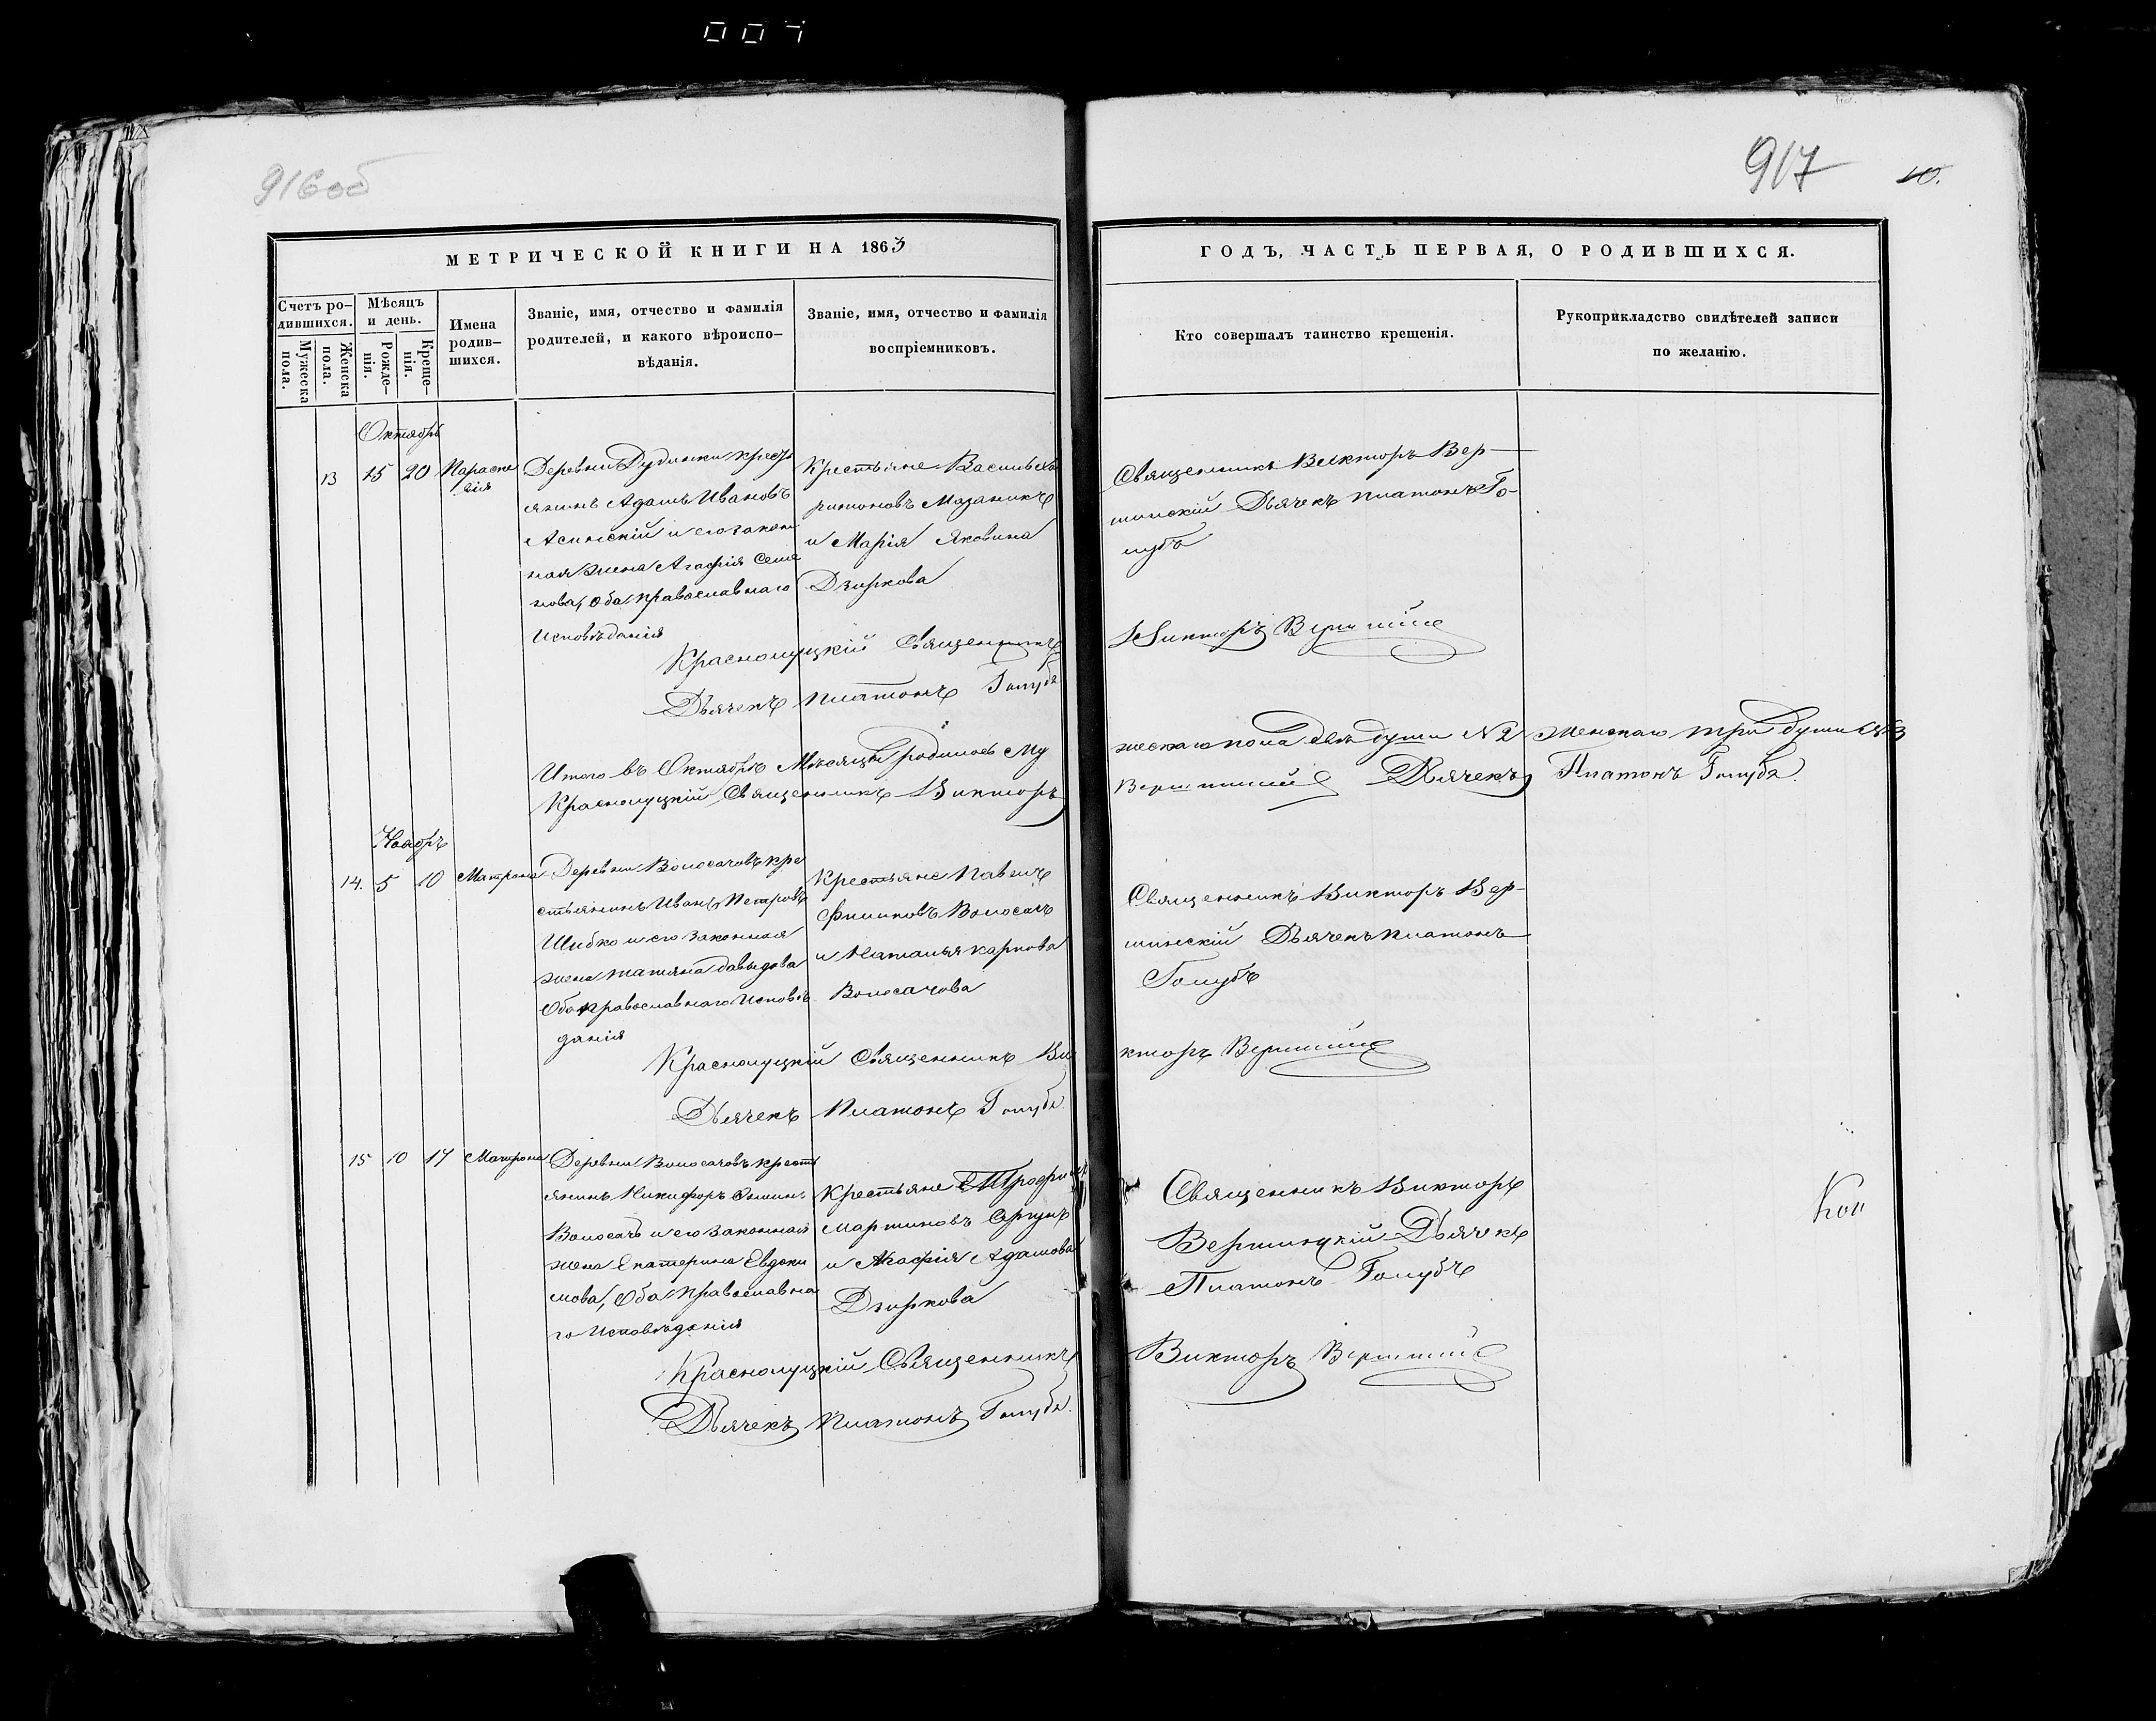 007
916об
917
10.
МЕТРИЧЕСКОЙ КНИГИ НА 1863
ГОДЪ, ЧАСТЬ ПЕРВАЯ, О РОДИВШИХСЯ.
Счетъ ро-
дившихся.
Мужеска
пола.
Женска
пола.
Мѣсяцъ
и день.
Рожде-
нія.
Креще-
нія.
Имена
родив-
шихся.
Званіе, имя, отчество и фамилія
родителей, и какого вѣроиспо-
вѣданія.
Званіе, имя, отчество и фамилія
воспріемниковъ.
Кто совершалъ таинство крещенія.
Рукоприкладство свидѣтелей записи
по желанію.
Октябрь
13 15 20 Параске
вія
Деревни Дудинки кресть
янинъ Адамъ Ивановъ
Асинскій и его закон
ная жена Агафія Семе
нова, Оба православнаго
Исповѣданія
Крестьяне Василь
Мазаникъ
и Марія Яковина
Дзиркова
Священникъ Викторъ Вер-
шинскій Дьячекъ Платонъ Го-
лубъ
Краснолуцкій Священникъ
Викторъ Вершинскій
Дьячекъ Платонъ Голубъ
Итого въ Октябрѣ Мѣсяцѣ родилось Му
жескаго пола двѣ души №2 женскаго три души №3
Краснолуцкій Священникъ Викторъ
Вершинскій Дьячекъ Платонъ Голубъ.
Ноябрь
14. 5 10 Матрона
Деревни Волосачовъ кре
стьянинъ Иванъ Петровъ
Шибко и его законная
жена татяна давыдова
Оба православнаго Исповѣ
данія
Крестьяне Павелъ
Филиповъ Волосачъ
и Наталья карпова
Волосачова
Священникъ Викторъ Вер-
шинскій Дьячекъ Платонъ
Голубъ
Краснолуцкій Священникъ Ви
кторъ Вершинскій
Дьячекъ Платонъ Голубъ.
15 10 17 Матрона
Деревни Волосачовъ кресть
янинъ Никифоръ
Волосачъ и его законная
жена Екатерина Евдоки
мова, Оба православна
го Исповѣданія
Крестьяне Трофимъ
Мартиновъ
и Агафія Адамова
Дзиркова
Священникъ Викторъ
Вершинскій Дьячекъ
Платонъ Голубъ
Коп
Краснолуцкій Священникъ
Викторъ Вершинскій
Дьячекъ Платонъ Голубъ.